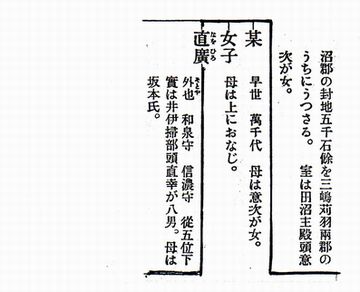 沼郡の封地五千石餘を三嶋苅羽兩郡の
うちにうつさる。 室は田沼主殿頭意
次が女。
某
早世 萬千代 母は意次が女。
女子
母は上におなじ。
直廣
なをひろ
外也 和泉守 信濃守 從五位下
そとや
實は井伊掃部頭直幸が八男。母は
坂本氏。